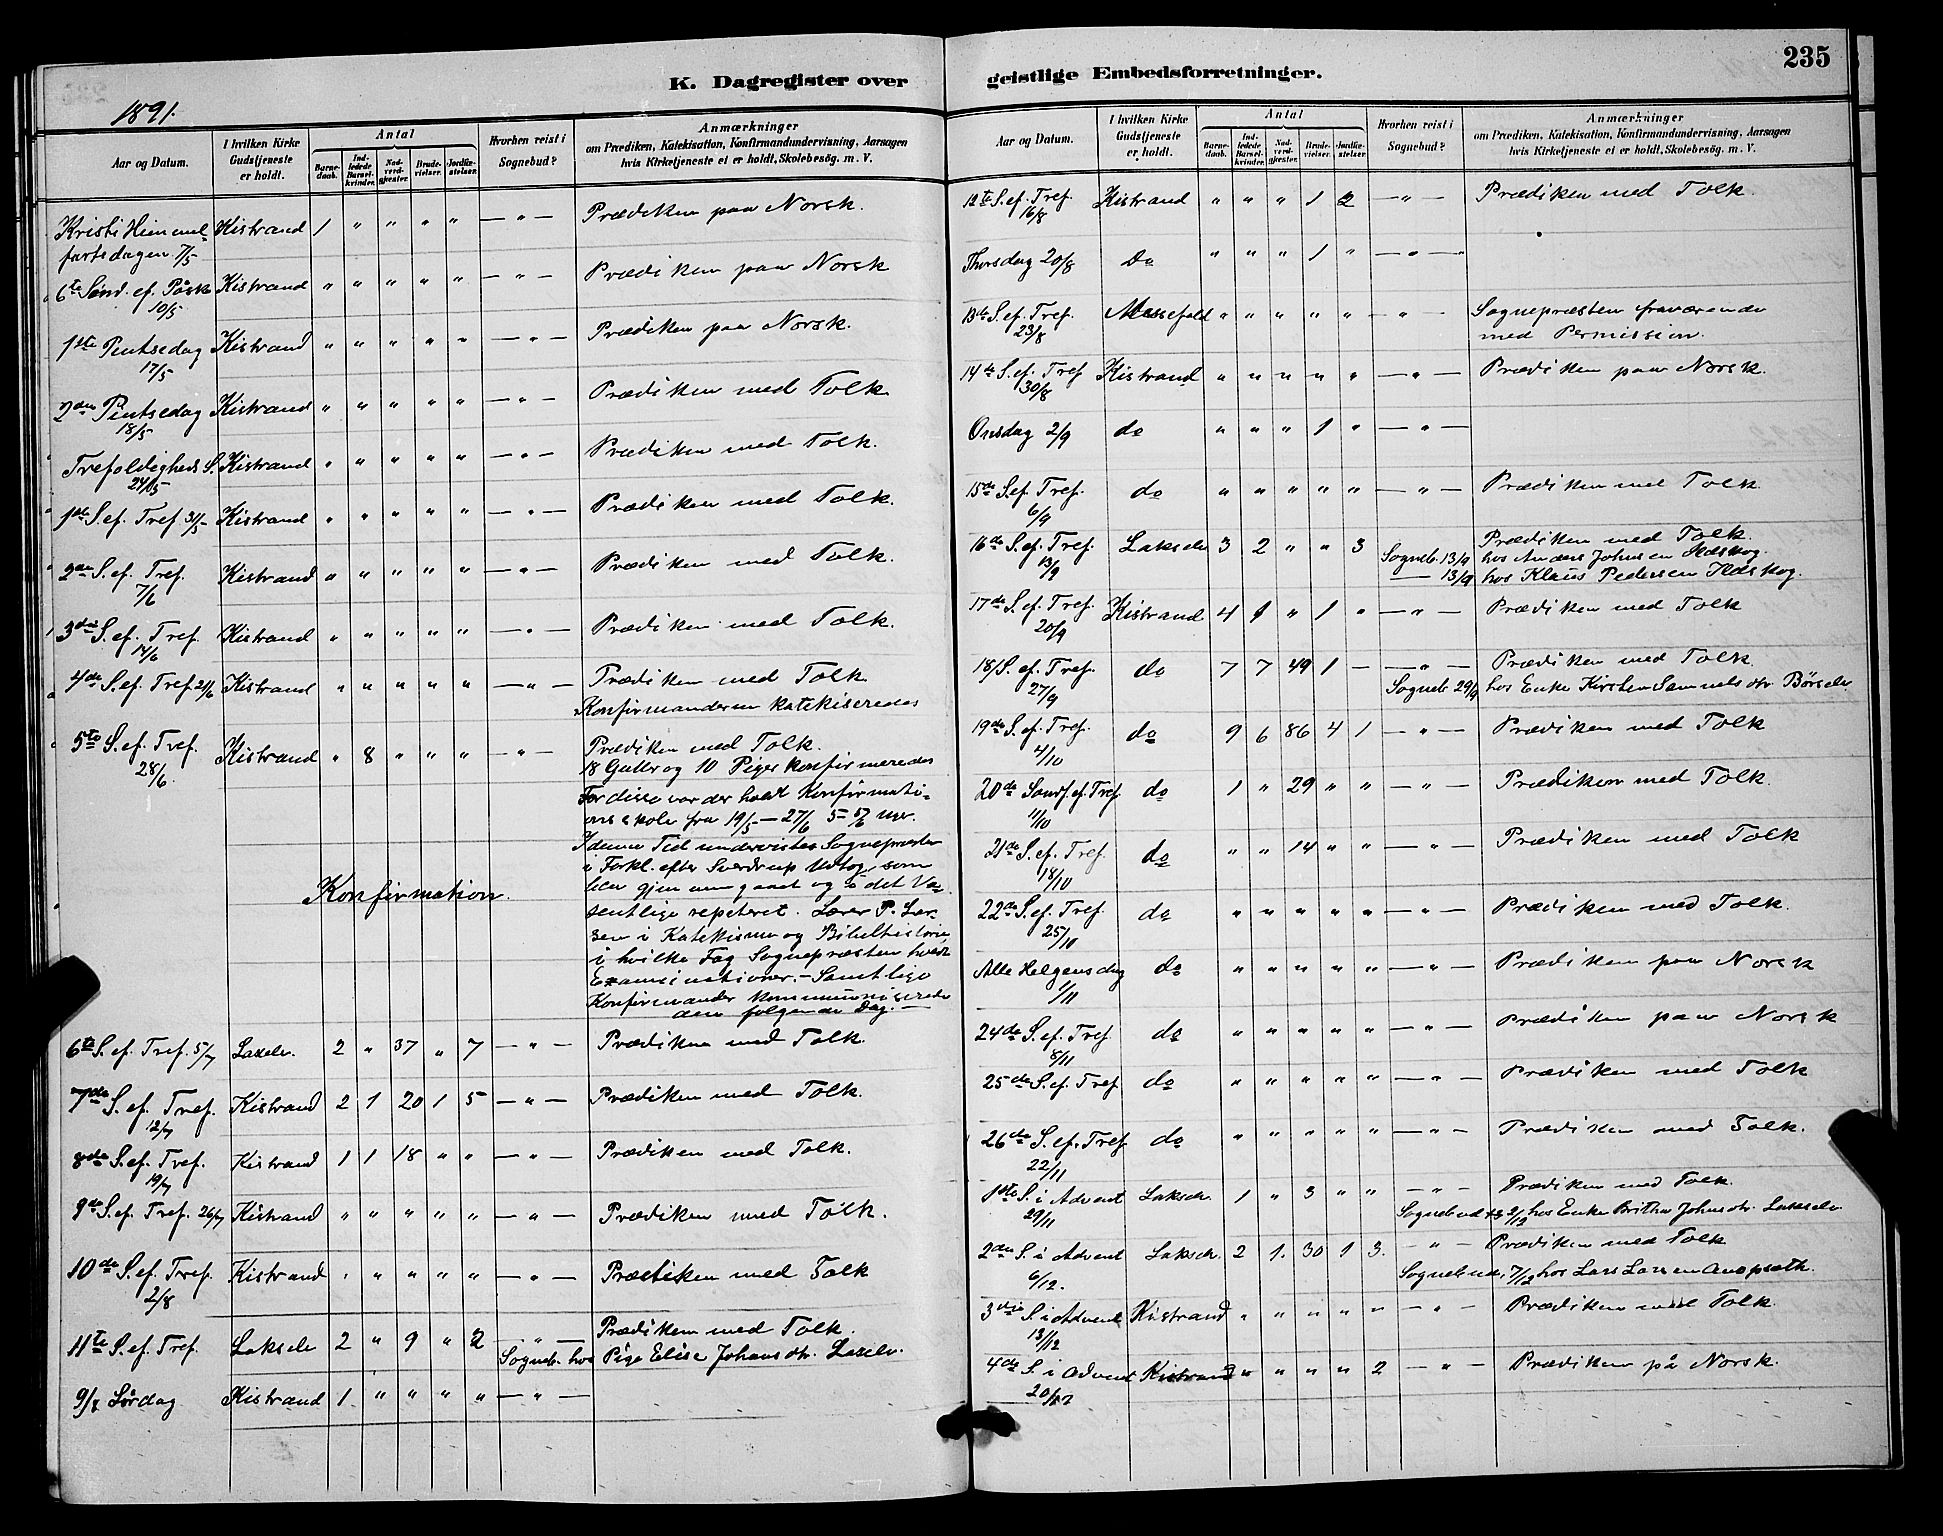 K. Dagregister over
1891.
Aar og Datum.
I hvilken Kirke Gudstjeneste er holdt.
Antal
Barnedaab.
Indledede Barselkvinder.
Nadverdgjester.
Brudevielser.
Jordfæstelser.
Hvorhen reist i Sognebud?
Anmærkninger
om Prædiken, Katekisation, Konfirmandundervisning, Aarsagen
hvis Kirketjeneste ei er holdt, Skolebesög. m. V.
Kristi Himmel- Kistrand 1 " " " " — " — Prædiken paa Norsk.
fartsdagen 7/5
6te Sönd. ef. Påske Kistrand " " " " " — " — Prædiken paa Norsk
10/5
1ste Pintsedag Kistrand " " " " " — " — Prædiken paa Norsk.
17/5
2den Pintsedag Kistrand " " " " " — " — Prædiken med Tolk
18/5
Trefoldigheds S. Kistrand " " " " " — " — Prædiken med Tolk.
24/5
1ste S. ef. Tref. 31/5 Kistrand " " " " " — " — Prædiken med Tolk.
2den S. ef. Tref. Kistrand " " " " " — " — Prædiken med Tolk.
7/6
3die S. ef. Tref. Kistrand " " " " " — " — Prædiken med Tolk.
14/6
4de S. ef. Tref. 21/6 Kistrand " " " " " — " — Prædiken med Tolk
Konfirmanderne katekiseredes
5te S. ef. Tref. Kistrand " 8 " " " — " — Prædiken med Tolk.
28/6.
18 Gutter og 10 Piger konfirmeredes
For disse var der holdt Konfirmati-
onsskole fra 19/5 — 27/6
I denne Tid undervistes Sognepresten
i Forkl. efter Sverdrup Udtog, som
blev gjennemgaaet og i det Væ-
Konfirmation.
sentlige repeteret. Lærer P. Lar-
sen i Katekisme og Bibelhistorie,
i hvilke Fag Sognepræsten holdt
Examinationer. — Samtlige
Konfirmander kommuniserede
den folgende Dag. —
6te S. ef. Tref. 5/7 Laxelv. 2 " 37 " 7 — " — Prædiken med Tolk.
7de S. ef. Tref. Kistrand 2 1 20 1 5 — " — Prædiken med Tolk.
12/7
8de S. ef. Tref. Kistrand 1 1 18 " " — " — Prædiken med Tolk.
19/7
9de S. ef. Tref. 26/7 Kistrand " " " " " — " — Prædiken med Tolk.
10de S. ef. Tref. Kistrand " " " " " — " — Prædiken med Tolk
2/8
11te S. ef. Tref. Lakselv 2 " 9 " 2 — " — Prædiken med Tolk.
Sogneb. hos Pige Elise Johansdtr. Laxelv.
9/8 Lørdag Kistrand 1 " " " " — " —
geistlige Embedsforretninger.
235
Aar og Datum.
I hvilken Kirke Gudstjeneste er holdt.
Antal
Barnedaab.
Indledede Barselkvinder.
Nadverdgjester.
Brudevielser.
Jordfæstelser
Hvorhen reist i Sognebud?
Anmærkninger
om Prædiken, Katekisation, Konfirmandundervisning, Aarsagen
hvis Kirketjeneste ei er holdt, Skolebesög. m. V.
12te S. ef. Tref. Kistrand " " " 1 2 — " — Prædiken med Tolk.
16/8
Thorsdag 20/8 Do " " " 1 " — " —
13de S. ef. Tref. Messefald " " " " " — " — Sognepræsten fraværende
23/8
med Permission.
14de S. ef. Tref Kistrand " " " " " — " — Prædiken paa Norsk.
30/8
Onsdag 2/9 do " " " 1 " — " —
15de S. ef. Tref. do " " " " " — " — Prædiken med Tolk
6/9
16de S. ef. Tref. Lakselv 3 2 " " 3 Prædiken med Tolk.
13/9
Sogneb. 13/9 hos Anders Johnsen Ildskog.
— 13/9 hos Klaus Pedersen Ildskog.
17de S. ef. Tref. Kistrand 4 1 " 1 " — " — Prædiken med Tolk
20/9
18/S. ef. Tref. do 7 7 49 1 — — " — Prædiken med Tolk.
27/9
Sogneb. 29/9 hos Enke Kirsten Samuelsdtr Børselv
19de S. ef. Tref. do 9 6 86 4 1 — " — Prædiken med Tolk
4/10
20de Sønd. ef. Tref. do 1 " 29 " " — " — Prædiken med Tolk.
11/10
21de S. ef. Tref. do " " 14 " " — " — Prædiken med Tolk
18/10
22de S. ef. Tref. do " " " " " — " — Prædiken med Tolk.
25/10
Alle Helgens dag do " " " " " — " — Prædiken paa Norsk
1/11
24de S. ef. Tref do " " " " " — " — Prædiken paa Norsk
8/11
25de S. ef. Tref do " " " " " — " — Prædiken med Tolk
26de S. ef. Tref do " " " " " — " — Prædiken med Tolk.
22/11
1ste S. i Advent Lakselv. 1 " 3 " " — " — Prædiken med Tolk.
29/11
Sognebud 2/12 hos Enke Britha Johnsdtr. Lakselv.
2den S. i Advent Lakselv. 2 1. 30 1 3. — " — Prædiken med Tolk
6/12.
Sognebud, 7/12 hos Lars Larsen
3die S. i Advent Kistrand " " " " " — " — Prædiken med Tolk.
13/12
4de S. i Advent Kistrand " " " " 2 — " — Prædiken på Norsk.
20/12